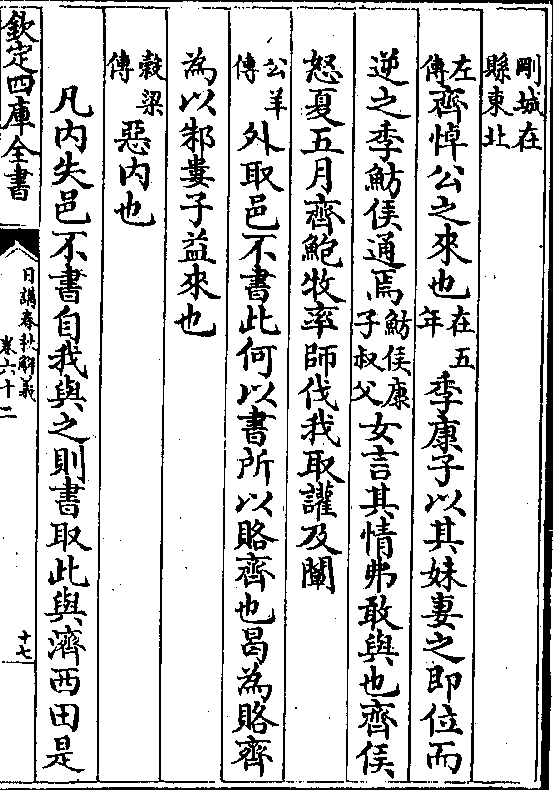 剛城在
縣東北
左傳齊悼公之來也在五年季康子以其妹妻之即位而
逆之季魴侯通焉魴侯康子叔父女言其情弗敢與也齊侯
怒夏五月齊鮑牧率師伐我取讙及闡
公羊傳外取邑不書此何以書所以賂齊也曷為賂齊
為以邾婁子益來也
穀梁傳惡內也
凡內失邑不書自我與之則書取此與濟西田是
欽定四庫全書
日講春秋解義
卷六十二
十七